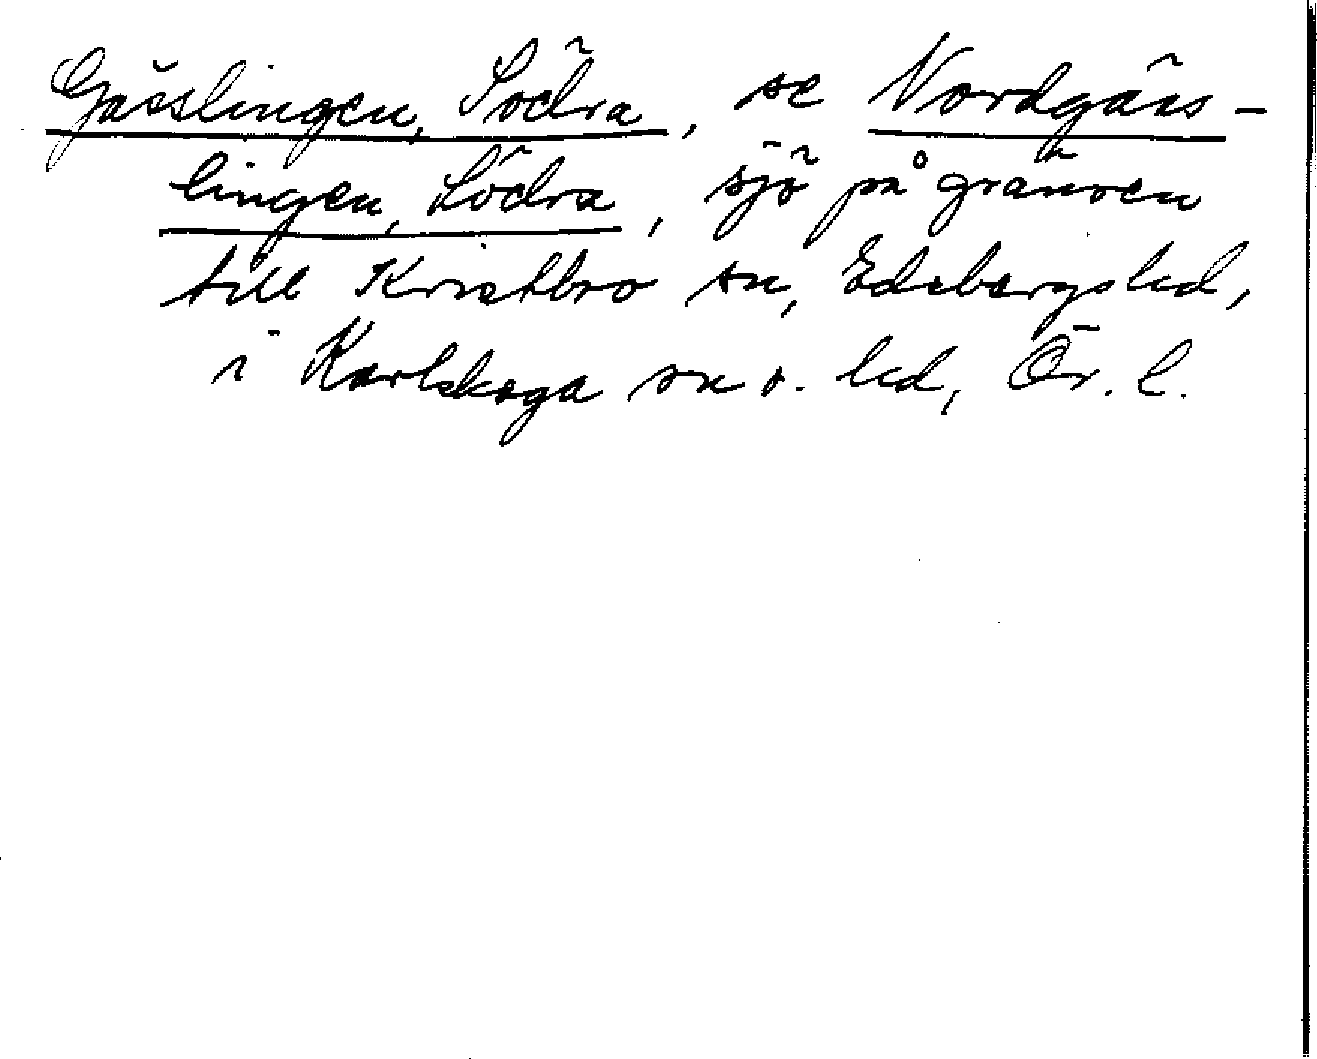 Gässlingen, Södra, se Nordgäss-
lingen, Södra, sjö på gränsen
till Kvistbro sn, Edsbergs hd,
i Karlskoga sn o. hd, Ör. l.